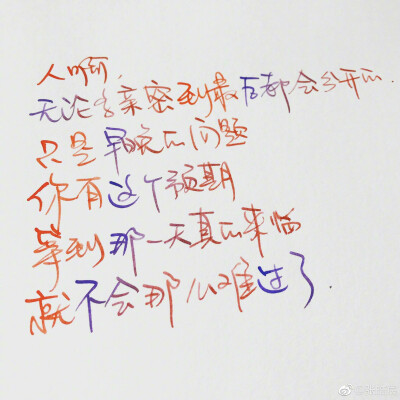 人啊，
无论多亲密到最后都会分开的
只是早晚的问题
你有这个预期
等到那一天真的来临
就不会那么难过了